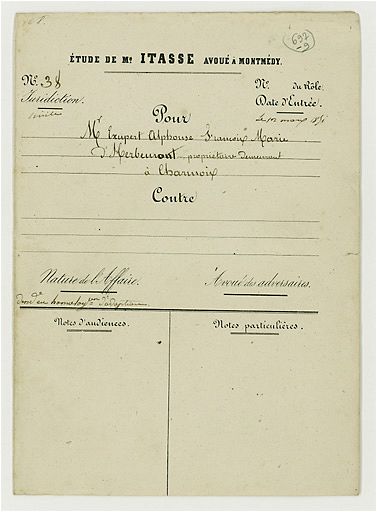 692
9
ÉTUDE DE Mᵉ ITASSE AVOUÉ A MONTMÉDY.
Nº 38
Nº. du Rôle.
Juridiction.
Date d'Entrée.
civile
Le 12 mars
Pour
Mr Exupert Alphonse François Marie
D'Herbemont, propriétaire demeurant
à Charmois
Contre
Nature de l'Affaire.
Avoué des adversaires.
dem de en homologon d'adoption
Notes d'audiences.
Notes particulières.